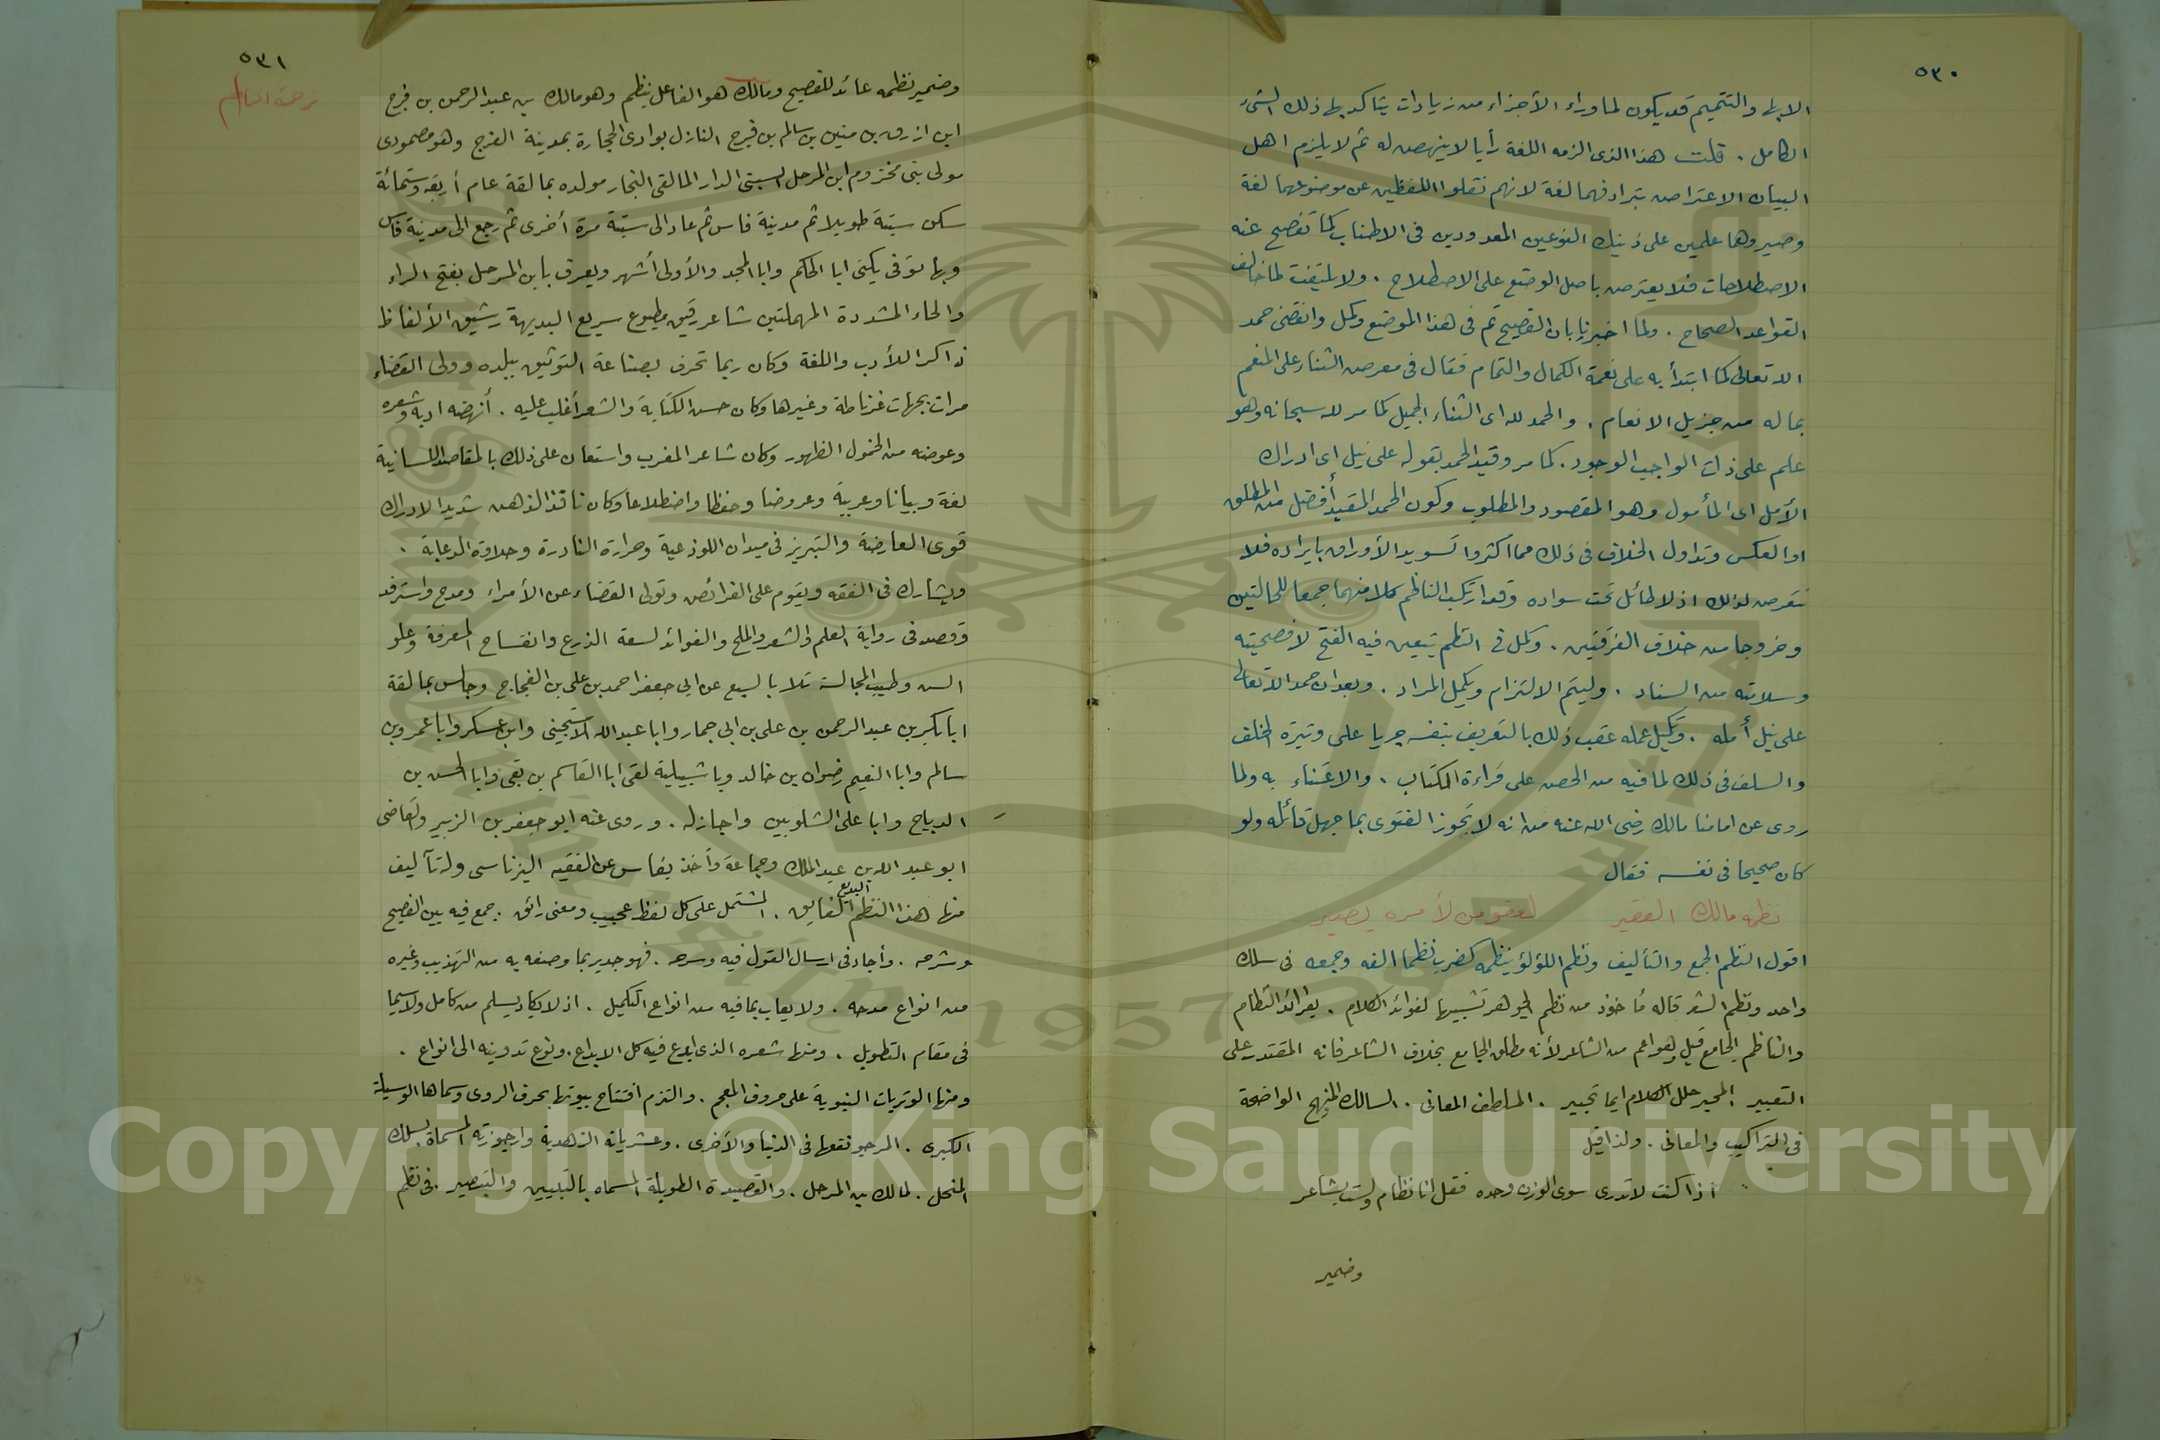 ٥٣٠
الا بها والتتميم قد يكون لما وراء الأجزاء من زيادات يتأكد بها ذلك الشيء
الكامل . قلت هذا الذى الزمه اللغة رأيا لا ينهض له ثم لا يلزم اهل
البيان الاعتراض بترادفهما لغة لانهم نقلوا اللفظين عن موضوعهما لغة
وصيروها علمين على ذينك النوعين المعدودين فى الاطناب كما تفصح عنه
الاصطلاحات فلا يعترض باصل الوضع على الاصطلاح . ولا يلتفت لما خالف
القواعد الصحاح . ولما اخبر بأن الفصيح تم فى هذا الموضع وكمل وانقضى حمد
الله تعالى كما ابتدأ به على نعمة الكمال والتمام فقال فى معرض الثناء على المنعم
بما له من جزيل الانعام . والحمد لله اى الثناء الجميل كما مر لله سبحانه وهو
علم على ذات الواجب الوجود . كما مر وقيد الحمد بقوله على نيل اى ادراك
الأمل اى المأمول وهو المقصود والمطلوب وكون الحمد المقيد أفضل من المطلق
او العكس وتداول الخلاف فى ذلك مما أكثروا تسويد الأوراق بايراده فلا
نتعرض لذلك اذ لا طائل تحت سواده وقد ارتكب الناظم كلا منهما جمعا للحالتين
وخروجا من خلاف الفرقتين . وكمل فى النظم يتعين فيه الفتح لأفصحيته
وسلامته من السناد . وليتم الالتزام ويكمل المراد . وبعد ان حمد الله تعالى
على نيل أمله . وتكميل عمله عقب ذلك بالتعريف بنفسه جريا على وتيرة الخلف
والسلف فى ذلك لما فيه من الحض على قراءة الكتاب . والاعتناء به ولما
روى عن امامنا مالك رضى الله عنه من انه لا تجوز الفتوى بما جهل قائله ولو
كان صحيحا فى نفسه فقال
نظمه مالك الفقير لعفو من لأمره يصير
اقول النظم الجمع والتأليف ونظم اللؤلؤ ينظمه كضرب نظما الفه وجمعه فى سلك
واحد ونظم الشعر قاله مأخوذ من نظم الجوهر تشبيها لفوائد الكلام . بفرائد النظام
والناظم الجامع قيل وهو اعم من الشاعر لأنه مطلق الجامع بخلاف الشاعر فانه المقتدر على
التعبير المحبر حلل الكلام ايما تحبير . الملطف المعانى . السالك المنهج الواضحة
فى التراكيب والمعانى . ولذا قيل
اذا كنت لا تدرى سوى الوزن وحده فقل انا نظام ولست بشاعر
وضمير
٥٣١
ترجمة الناظم
وضمير نظمه عائد للفصيح ومالك هو الفاعل ينظم وهو مالك بن عبد الرحمن بن فرج
ابن ازرق بن منين بن سالم بن فرج النازل بوادى الحجارة بمدينة الفرج وهو مصمودى
مولى بنى مخزوم ابن المرحل السبتى الدار المالقى النجار مولده بمالقة عام أربعة وستمائة
سكن سبتة طويلا ثم مدينة فاس ثم عاد الى سبتة مرة أخرى ثم رجع الى مدينة فاس
وبها توفى يكنى ابا الحكم وابا المجد والأولى أشهر ويعرف بابن المرحل بفتح الراء
والحاء المشددة المهملتين شاعر رقيق مطبوع سريع البديهة رشيق الألفاظ
ذاكرا للأدب واللغة وكان ربما تحرف بصناعة التوثيق ببلده وولى القضاء
مرات بجهات غرناطة وغيرها وكان حسن الكتابة والشعر أغلب عليه . أنهضه ادبه وشعره
وعوضه من الخمول الظهور وكان شاعر المغرب واستعان على ذلك بالمقاصد اللسانية
لغة وبيانا وعربية وعروضا وحفظا واضطلاعا وكان ناقذ الذهن شديد الادراك
قوى العارضة والتبريز فى ميدان اللوذعية وحرارة النادرة وحلاوة الدعابة .
ويشارك فى الفقه ويقوم على الفرائض وتولى القضاء عن الأمراء ومدح واسترفد
وقصد فى رواية العلم والشعر والملح والفوائد لسعة الذرع وانفساح المعرفة وعلو
السن وطيب المجالسة تلا بالسبع عن ابى جعفر احمد بن على بن الفحاج وجالس بمالقة
ابا بكر بن عبد الرحمن بن على بن ابى جمار وابا عبد الله الاستجينى وابن عسكر وابا عمرو بن
سالم وابا النعيم رضوان بن خالد وباشبيلية لقى ابا القاسم بن بقى وابا الحسن بن
الدباج وابا على الشلوبين واجاز له . وروى عنه ابو جعفر بن الزبير والقاضى
ابو عبد الله بن عبد الملك وجماعة وأخذ بفاس عن الفقيه اليزناسى وله تآليف
منها هذا النظم البديع الفايق . المشتمل على كل لفظ عجيب ومعنى رائق . جمع فيه بين الفصيح
وشرحه . وأجاد فى ارسال القول فيه وسرحه . فهو جدير بما وصفه به من التهذيب وغيره
من انواع مدحه . ولا يعاب بما فيه من انواع التكميل . اذ لا يكاد يسلم من كامل ولا سيما
فى مقام التطويل . ومنها شعره الذى ابدع فيه كل الابداع . ونوع تدوينه الى انواع .
ومنها الوتريات النبوية على حروف المعجم . والتزم افتتاح بيوتها بحرف الروى وسماها الوسيلة
الكبرى . المرجو نفعها فى الدنيا والأخرى . وعشرياته الزهدية وارجوزته المسماة بسلك
المنحل . لمالك بن المرحل . والقصيدة الطويلة المسماه بالتبيين والتبصير . فى نظم
Copyright © King Saud University
1957